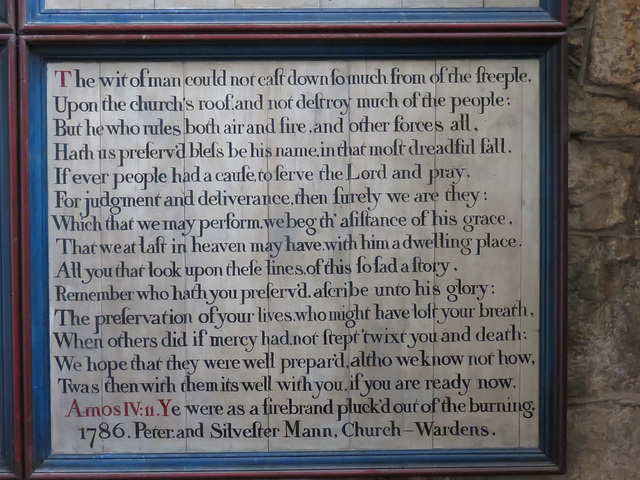 The wit of man could not caſt down ſo much from of the ſteeple.
Upon the church's roof, and not deſtroy much of the people:
But he who rules both air and fire, and other forces all,
Hath us preſerv'd bleſs be his name, in that moſt dreadful fall.
If ever people had a cauſe, to ſerve the Lord and pray,
For judgment and deliverance, then ſurely we are they:
Which that we may perform, we beg th' aſiſtance of his grace,
That we at laſt in heaven may have, with him a dwelling place.
All you that look upon theſe lines, of this ſo ſad a ſtory,
Remember who hath you preſerv'd, aſcribe unto his glory:
The preſervation of your lives, who might have loſt your breath,
When others did if mercy had, not ſtept 'twixt you and death:
We hope that they were well prepar'd, altho we know not how,
'Twas then with them its well with you, if you are ready now.
Amos IV: 11. Ye were as a firebrand pluck'd out of the burning.
1786. Peter, and Silveſter Mann, Church-Wardens.